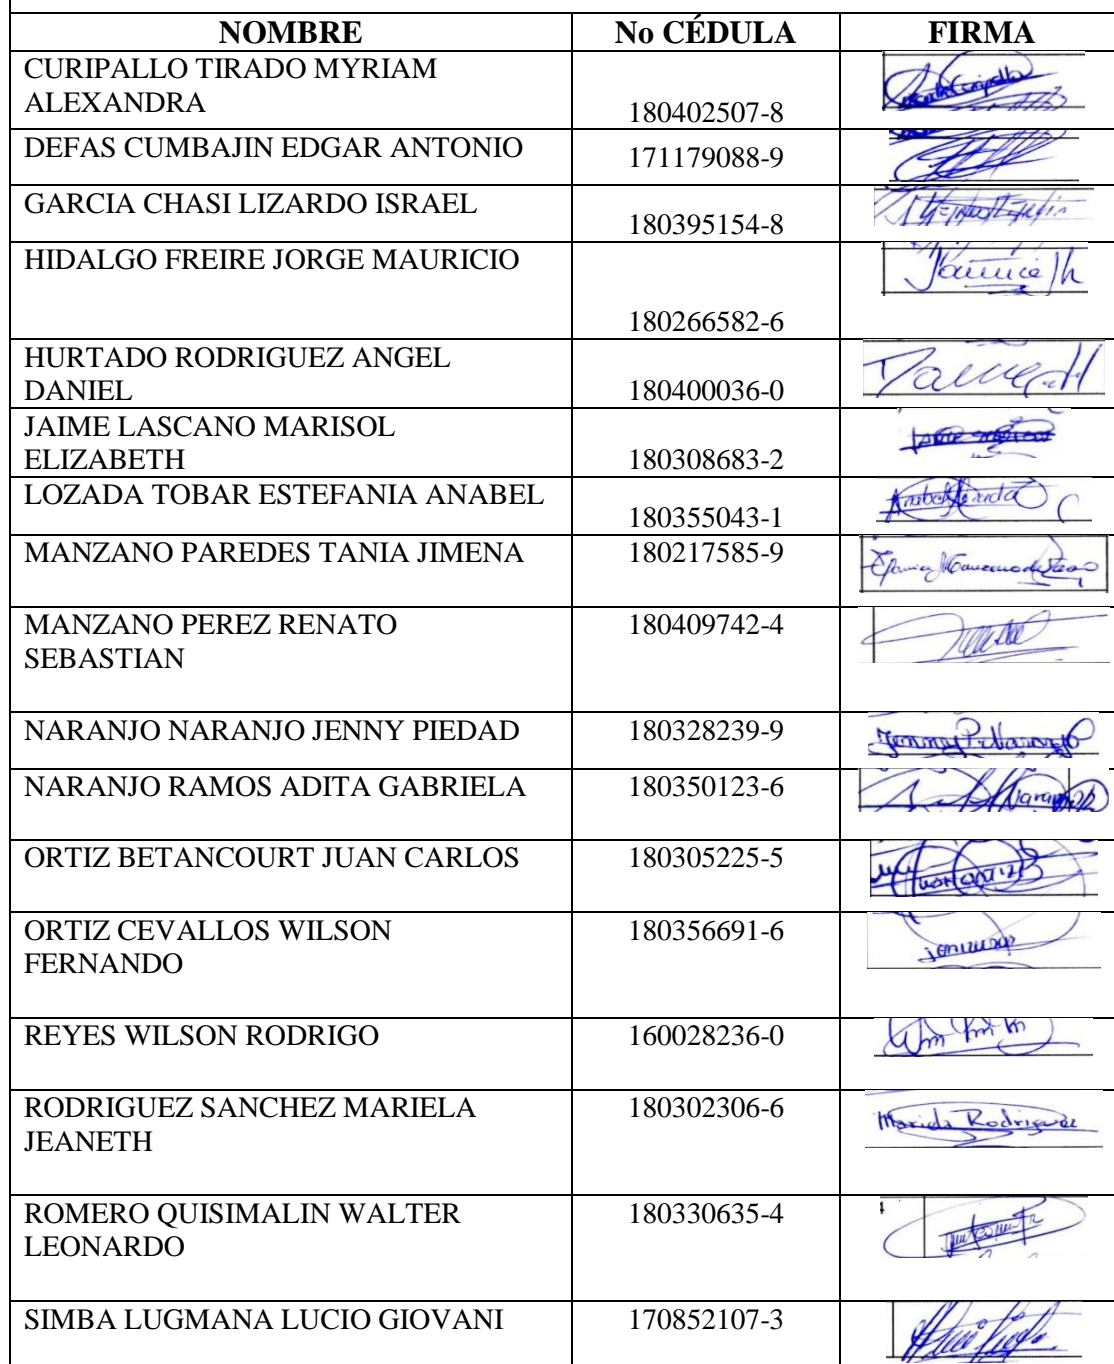 NOMBRE No CÉDULA FIRMA
CURIPALLO TIRADO MYRIAM
ALEXANDRA
180402507-8
DEFAS CUMBAJIN EDGAR ANTONIO 171179088-9
GARCIA CHASI LIZARDO ISRAEL
180395154-8
HIDALGO FREIRE JORGE MAURICIO
180266582-6
HURTADO RODRIGUEZ ANGEL
DANIEL 180400036-0
JAIME LASCANO MARISOL
ELIZABETH 180308683-2
LOZADA TOBAR ESTEFANIA ANABEL
180355043-1
MANZANO PAREDES TANIA JIMENA 180217585-9
MANZANO PEREZ RENATO 180409742-4
SEBASTIAN
NARANJO NARANJO JENNY PIEDAD 180328239-9
Jenny P. Naranjo
NARANJO RAMOS ADITA GABRIELA 180350123-6
ORTIZ BETANCOURT JUAN CARLOS 180305225-5
ORTIZ CEVALLOS WILSON 180356691-6
FERNANDO
REYES WILSON RODRIGO 160028236-0
RODRIGUEZ SANCHEZ MARIELA 180302306-6 Mariela Rodriguez
JEANETH
ROMERO QUISIMALIN WALTER 180330635-4
LEONARDO
SIMBA LUGMANA LUCIO GIOVANI 170852107-3